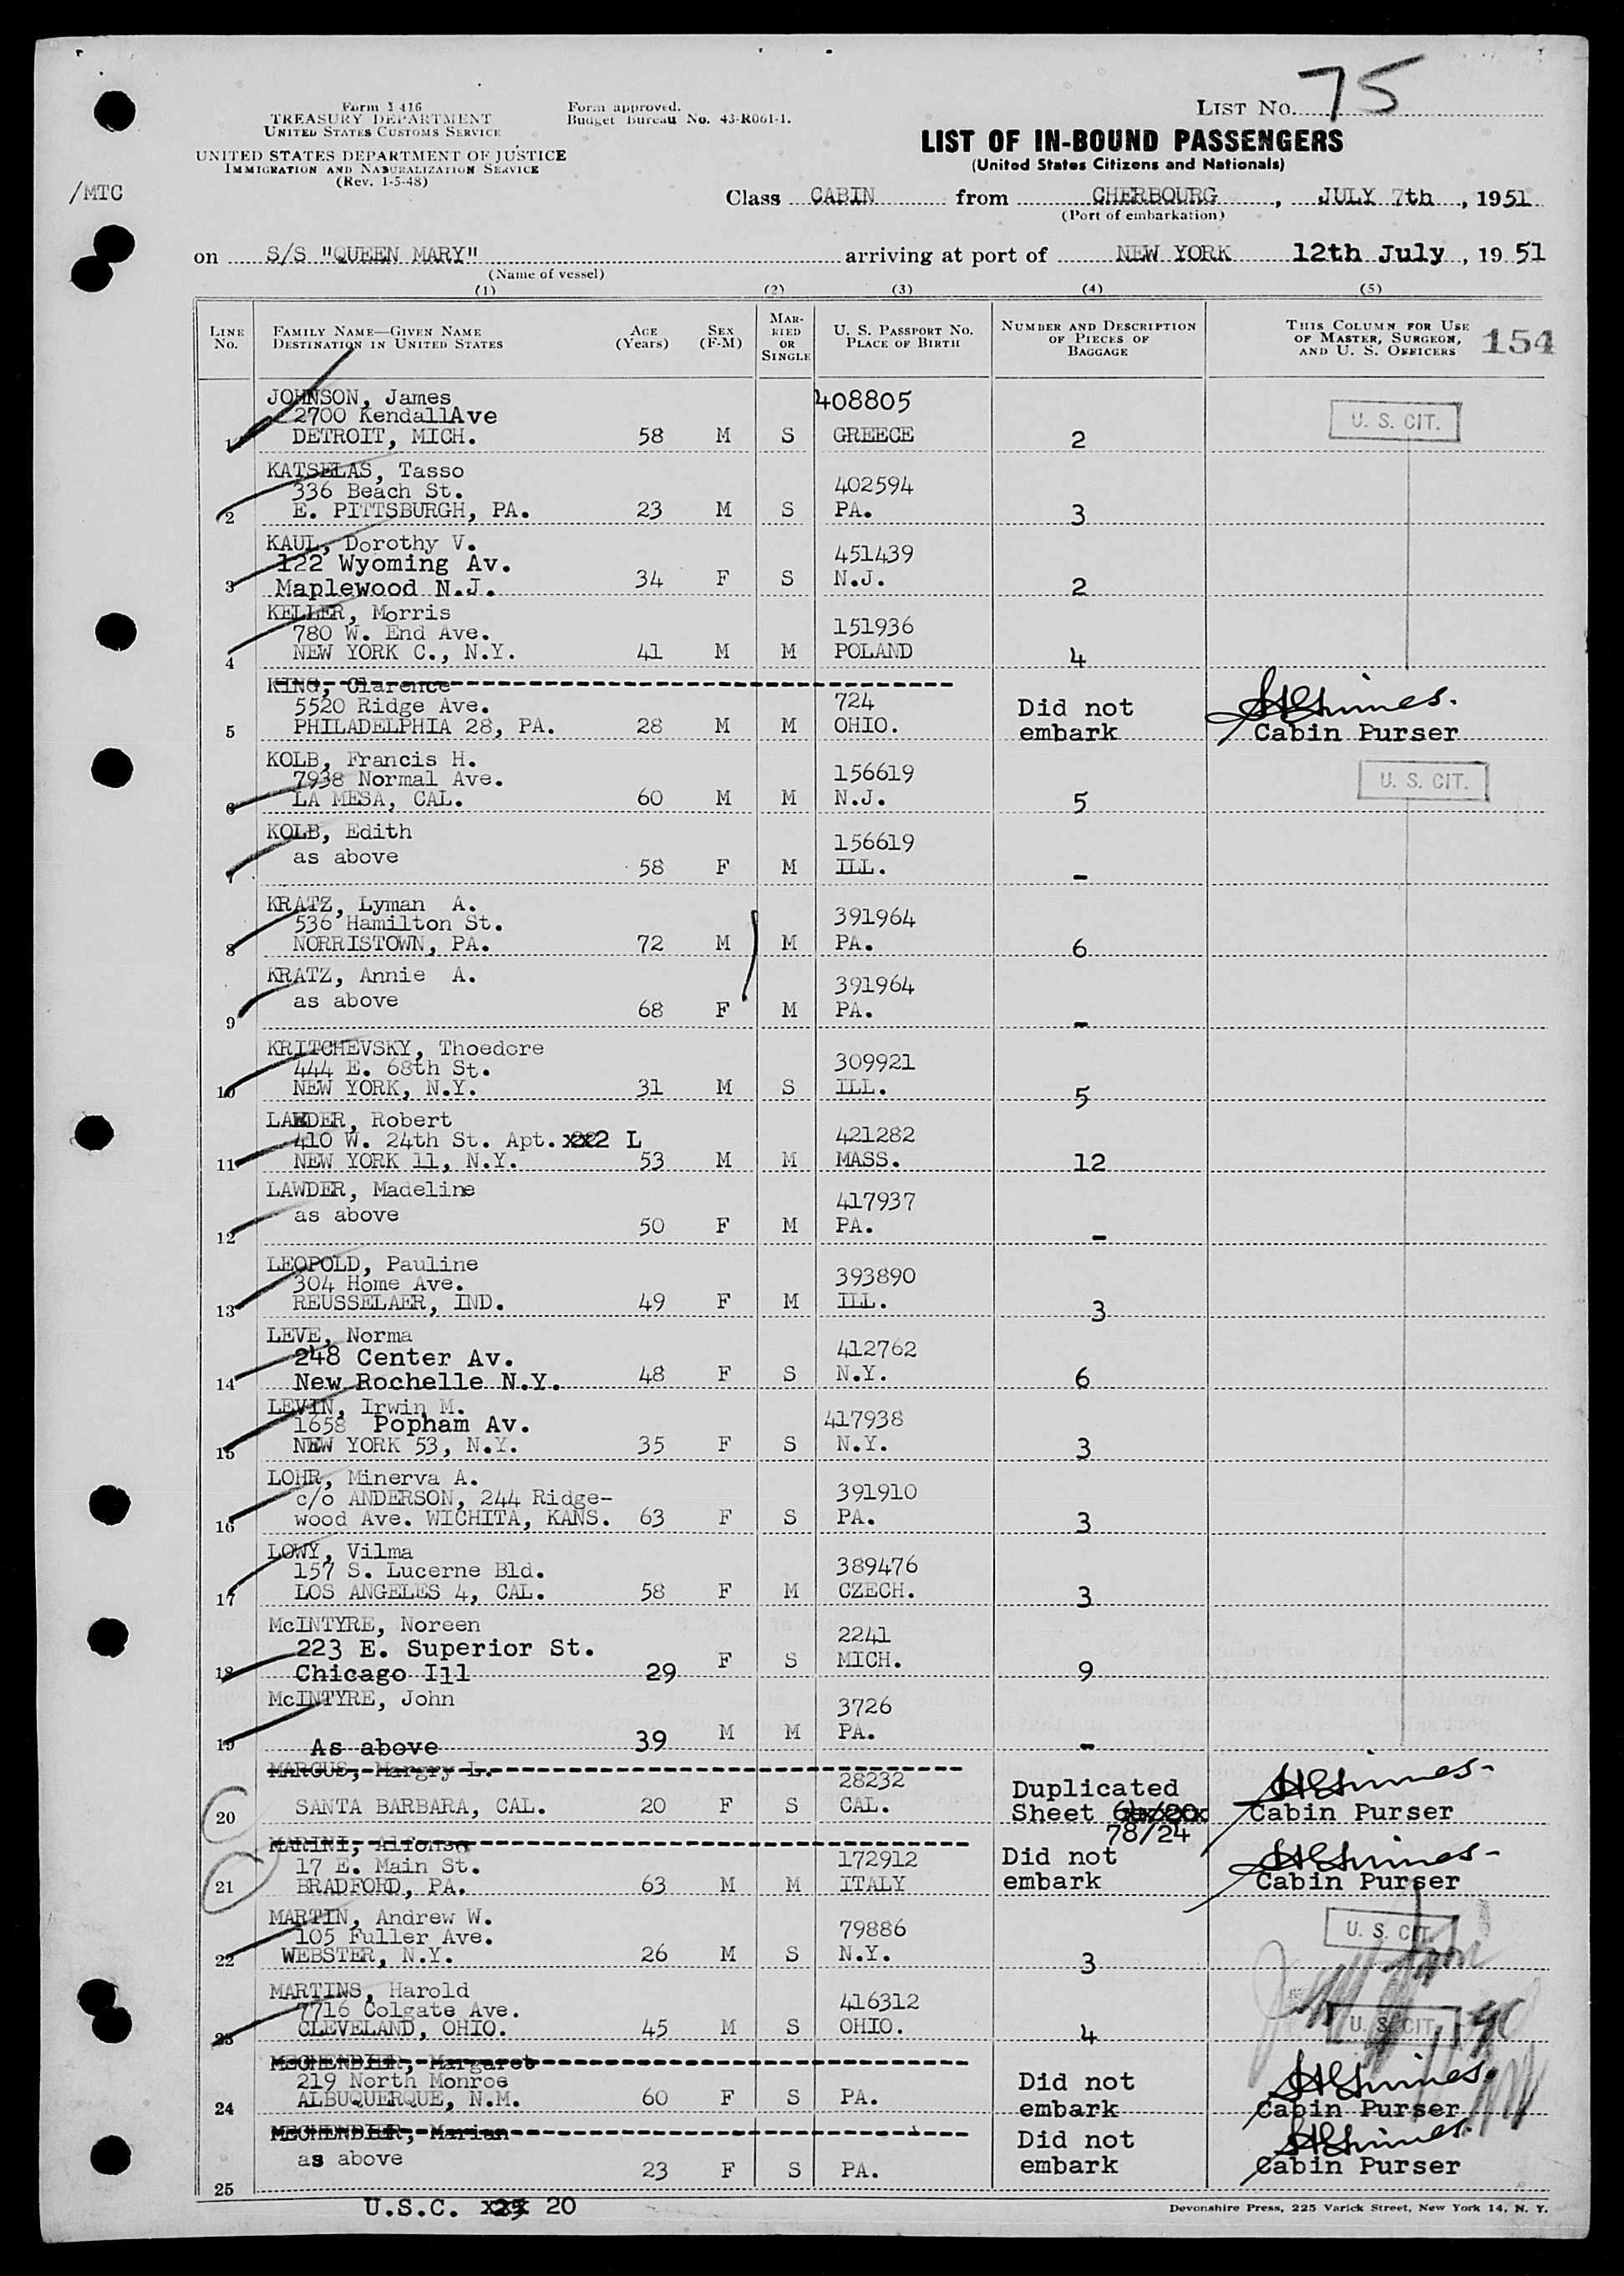 75
Form I 416
TREASURY DEPARTMENT
UNITED STATES CUSTOMS SERVICE
UNITED STATES DEPARTMENT OF JUSTICE
IMMIGRATION AND NATURALIZATION SERVICE
(Rev. 1-5-48)
Form approved.
Budget Bureau No. 43-R061-1.
LIST NO.
LIST OF IN-BOUND PASSENGERS
(United States Citizens and Nationals)
/MTC
Class CABIN from CHERBOURG, JULY 7th, 1951
(Port of embarkation)
on S/S "QUEEN MARY" arriving at port of NEW YORK 12th July, 19 51
(Name of vessel)
(1) (2) (3) (4) (5)
LINE NO.
FAMILY NAME—GIVEN NAME
DESTINATION IN UNITED STATES
AGE (Years)
SEX (F-M)
MARRIED OR SINGLE
U. S. PASSPORT NO.
PLACE OF BIRTH
NUMBER AND DESCRIPTION OF PIECES OF BAGGAGE
THIS COLUMN FOR USE OF MASTER, SURGEON, AND U. S. OFFICERS
154
JOHNSON, James 408805
2700 KendallAve U. S. CIT.
1 DETROIT, MICH. 58 M S GREECE 2
KATSELAS, Tasso
336 Beach St. 402594
2 E. PITTSBURGH, PA. 23 M S PA. 3
KAUL, Dorothy V.
122 Wyoming Av. 451439
3 Maplewood N.J. 34 F S N.J. 2
KELLER, Morris
780 W. End Ave. 151936
4 NEW YORK C., N.Y. 41 M M POLAND 4
KING, Clarence
5520 Ridge Ave. 724 Did not
5 PHILADELPHIA 28, PA. 28 M M OHIO. embark Cabin Purser
KOLB, Francis H.
7938 Normal Ave. 156619 U. S. CIT.
6 LA MESA, CAL. 60 M M N.J. 5
KOLB, Edith 156619
7 as above 58 F M ILL. -
KRATZ, Lyman A.
536 Hamilton St. 391964
8 NORRISTOWN, PA. 72 M M PA. 6
KRATZ, Annie A. 391964
9 as above 68 F M PA. -
KRITCHEVSKY, Thoedore
444 E. 68th St. 309921
10 NEW YORK, N.Y. 31 M S ILL. 5
LAWDER, Robert
410 W. 24th St. Apt. xx2 L 421282
11 NEW YORK 11, N.Y. 53 M M MASS. 12
LAWDER, Madeline 417937
12 as above 50 F M PA. -
LEOPOLD, Pauline
304 Home Ave. 393890
13 REUSSELAER, IND. 49 F M ILL. 3
LEVE, Norma
248 Center Av. 412762
14 New Rochelle N.Y. 48 F S N.Y. 6
LEVIN, Irwin M.
1658 Popham Av. 417938
15 NEW YORK 53, N.Y. 35 F S N.Y. 3
LOHR, Minerva A.
c/o ANDERSON, 244 Ridge- 391910
16 wood Ave. WICHITA, KANS. 63 F S PA. 3
LOWY, Vilma
157 S. Lucerne Bld. 389476
17 LOS ANGELES 4, CAL. 58 F M CZECH. 3
McINTYRE, Noreen
223 E. Superior St. 2241
18 Chicago Ill 29 F S MICH. 9
McINTYRE, John 3726
19 As above 39 M M PA. -
MARCUS, Margry L.
28232 Duplicated
20 SANTA BARBARA, CAL. 20 F S CAL. Sheet 78/24 Cabin Purser
MARINI, Alfonso
17 E. Main St. 172912 Did not
21 BRADFORD, PA. 63 M M ITALY embark Cabin Purser
MARTIN, Andrew W.
105 Fuller Ave. 79886 U. S. CIT.
22 WEBSTER, N.Y. 26 M S N.Y. 3
MARTINS, Harold
7716 Colgate Ave. 416312
23 CLEVELAND, OHIO. 45 M S OHIO. 4 U. S. CIT.
MECHENBIER, Margaret
219 North Monroe Did not
24 ALBUQUERQUE, N.M. 60 F S PA. embark Cabin Purser
MECHENBIER, Marian Did not
25 as above 23 F S PA. embark Cabin Purser
U.S.C. 20
Devonshire Press, 225 Varick Street, New York 14, N. Y.